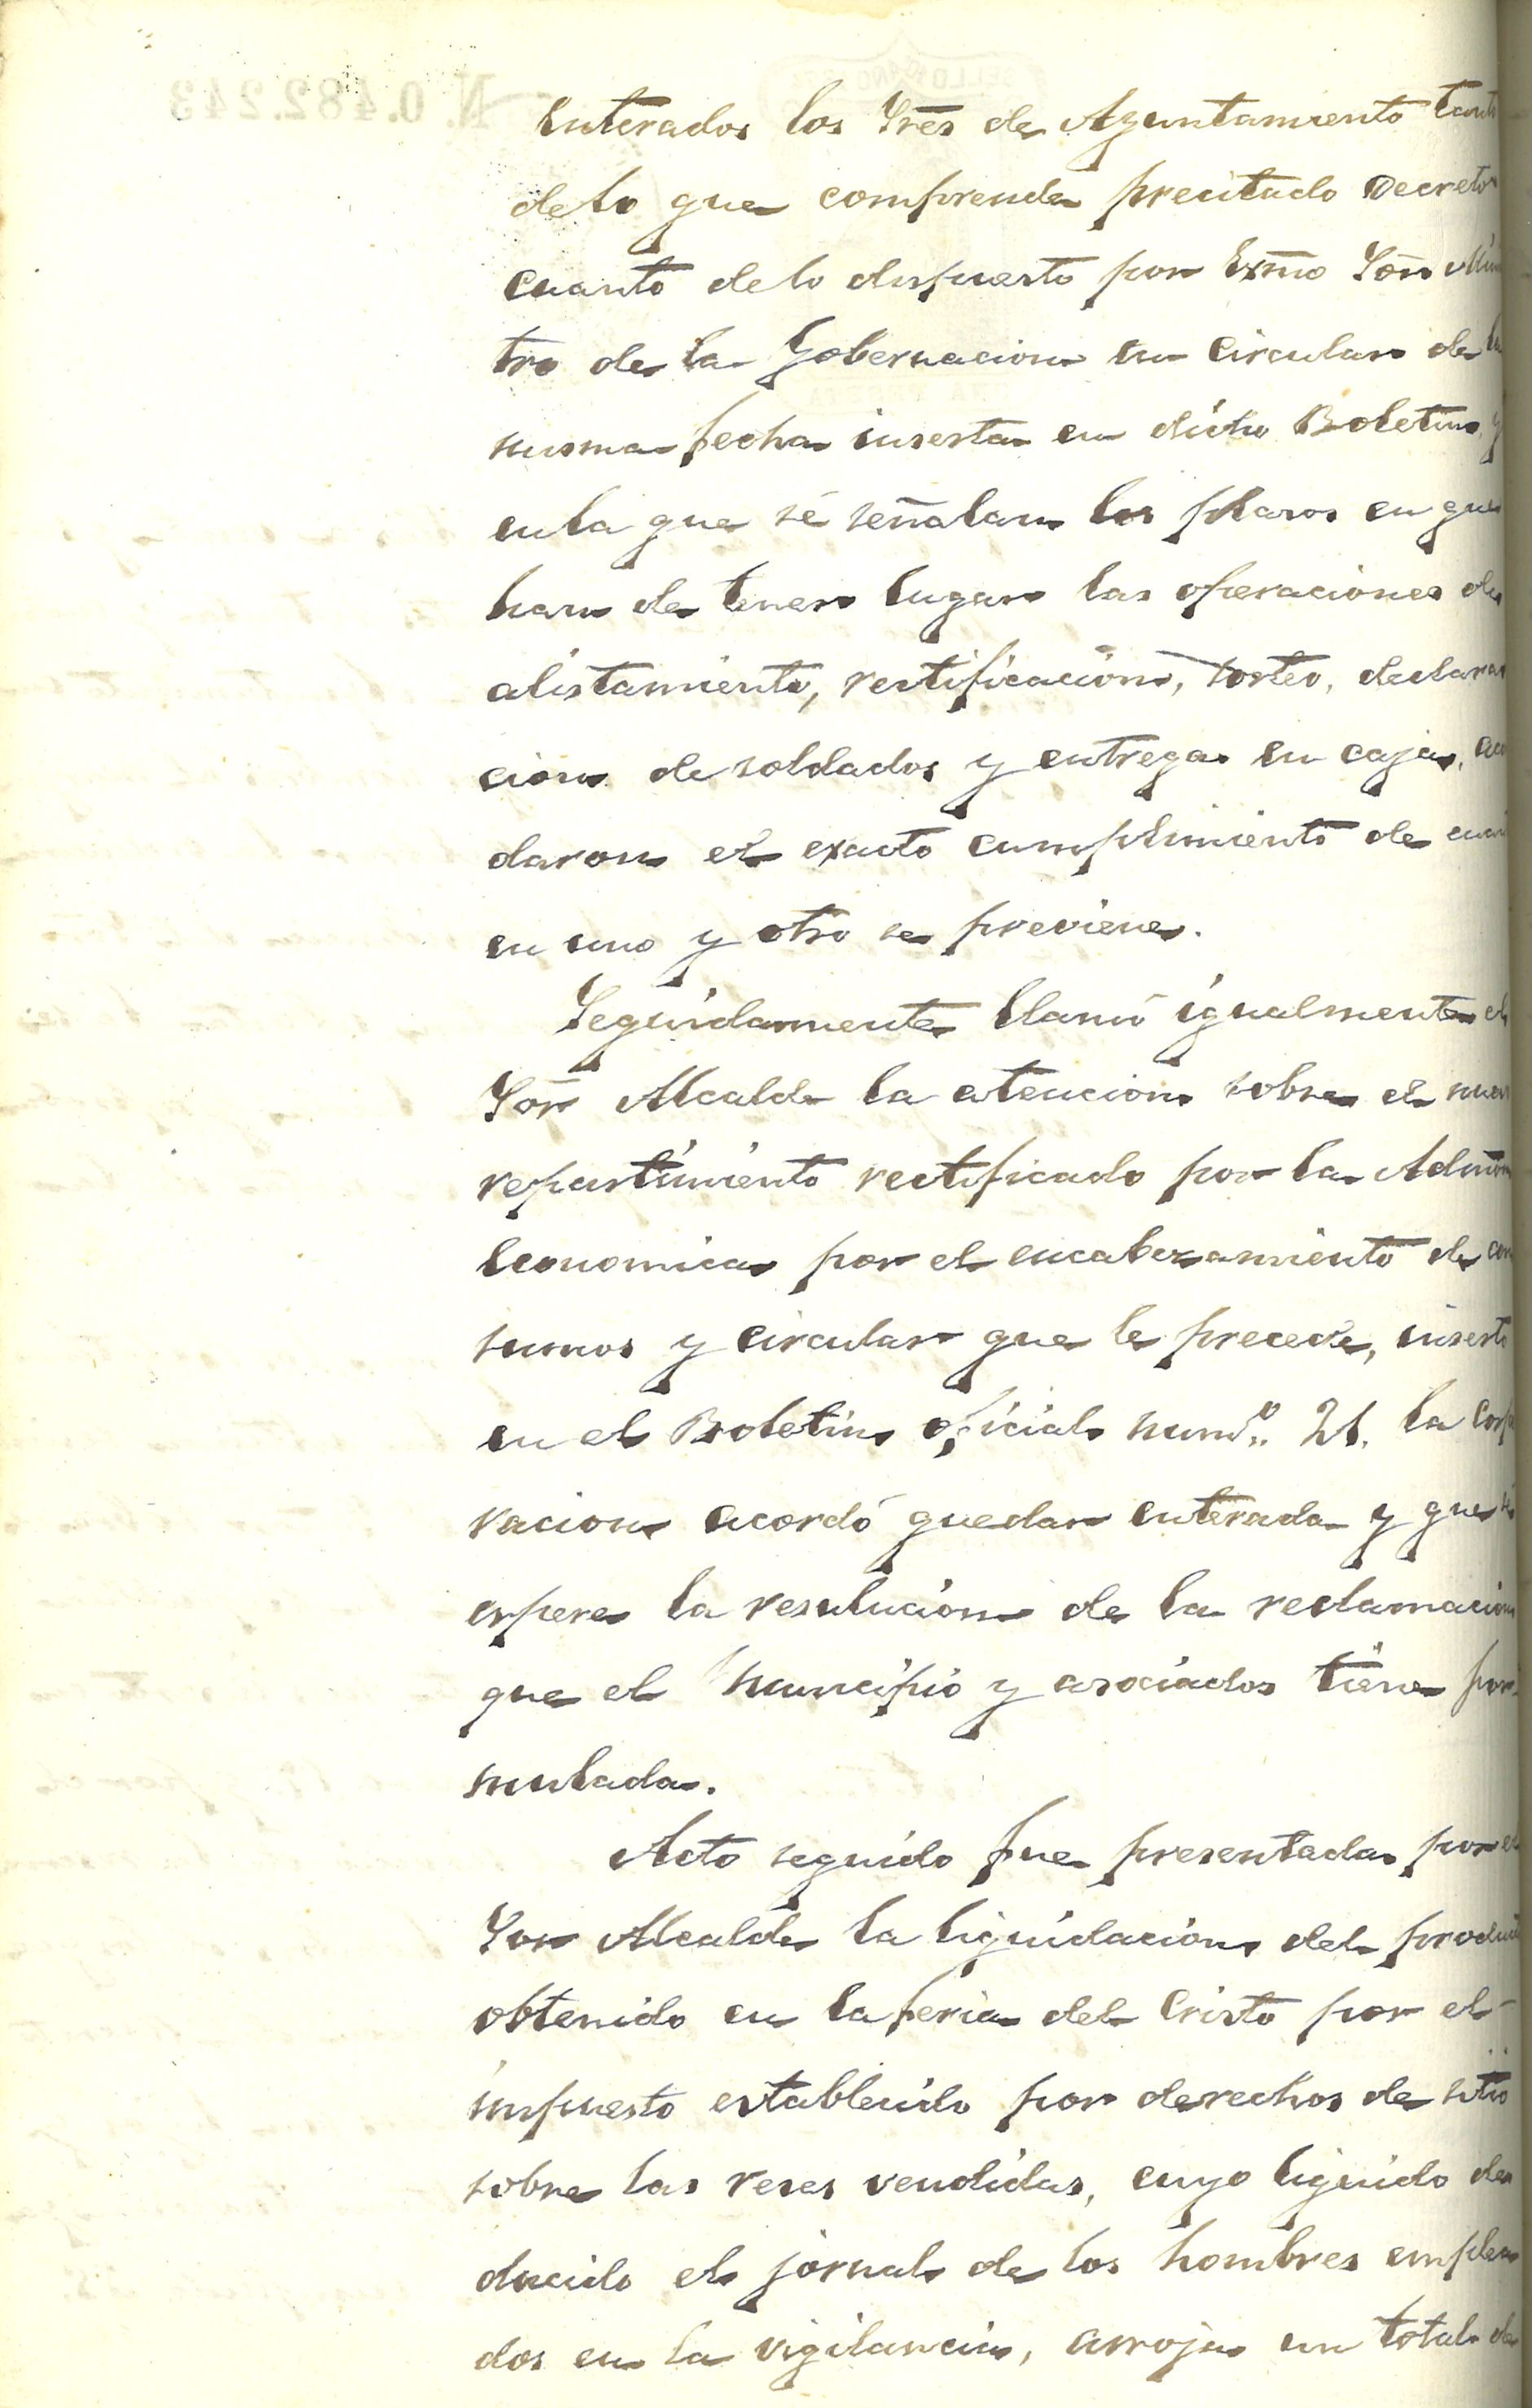 Enterados los Sres de Ayuntamiento tanto
de lo que comprende precitado Decreto
cuanto de lo dispuesto por Exmo Sor Minis
tro de la Gobernacion en circular de la
misma fecha inserta en dicho Boletin, y
en la que sé señalan los plazos en que
han de tener lugar las operaciones de
alistamiento, rectificacion, sorteo, declara
cion de soldados y entrega en caja, acor
daron el exacto cumplimiento de cuanto
en uno y otro se previene.
Seguidamente llamó igualmente el
Sor Alcalde la atencion sobre el nuevo
repartimiento rectificado por la Admon
Economica por el encabezamiento de con
sumos y circular que le precede, inserto
en el Boletin oficial numo. 21. la Corpo
racion acordó quedar enterada y que sé
espere la resolucion de la reclamacion
que el municipio y asociados tiene for
mulada.
Acto seguido fue presentada por el
Sor Alcalde la liquidacion del producto
obtenido en la feria del Cristo por el
impuesto establecido por derechos de sitio
sobre las reses vendidas, cuyo liquido de
ducido el jornal de los hombres emplea
dos en la vigilancia, arroja un total de
N. 0.482.243